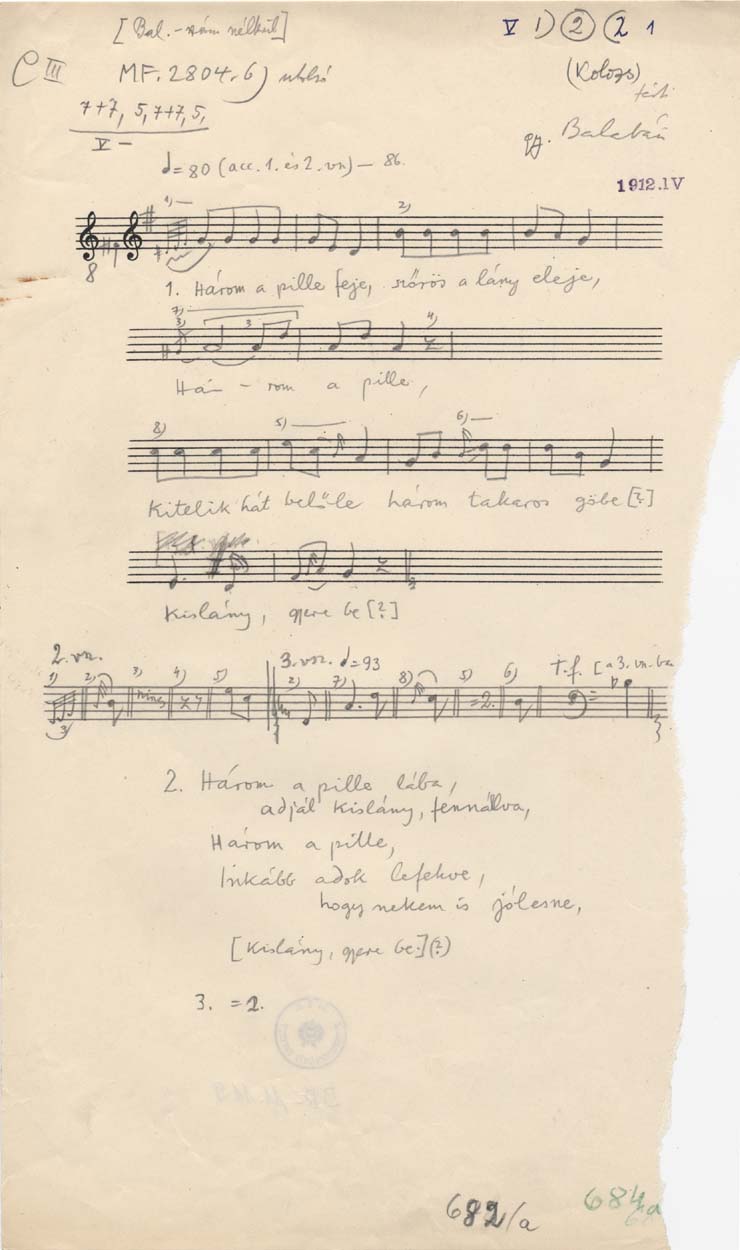 [Bal. - szám nélkül]
V 1) 2 (2 1
C III
MF. 2804. b) utolsó
(Kolozs)
7+7, 5, 7+7, 5,
V —
gy. Balabán
♩=80 (acc. 1. és 2. vn) — 86.
1912.IV
1) 2)
8
1. Három a pille feje, szőrös a lány eleje,
7)
3) 3 4)
Há - rom a pille,
8) 5) 6)
Kitelik hát belőle három takaros göbe [?]
Kislány, gyere be [?]
2. vsz. 3. vsz. ♩=93
1) 2) 3) nincs 4) 5) 2) 7) 8) 5) =2. 6) t.f. [a 3. vn.-ba
3
2. Három a pille lába,
adjál kislány, fennállva,
Három a pille,
Inkább adok lefekve,
hogy nekem is jólesne,
[Kislány, gyere be.](?)
3. =2.
682/a
684/a